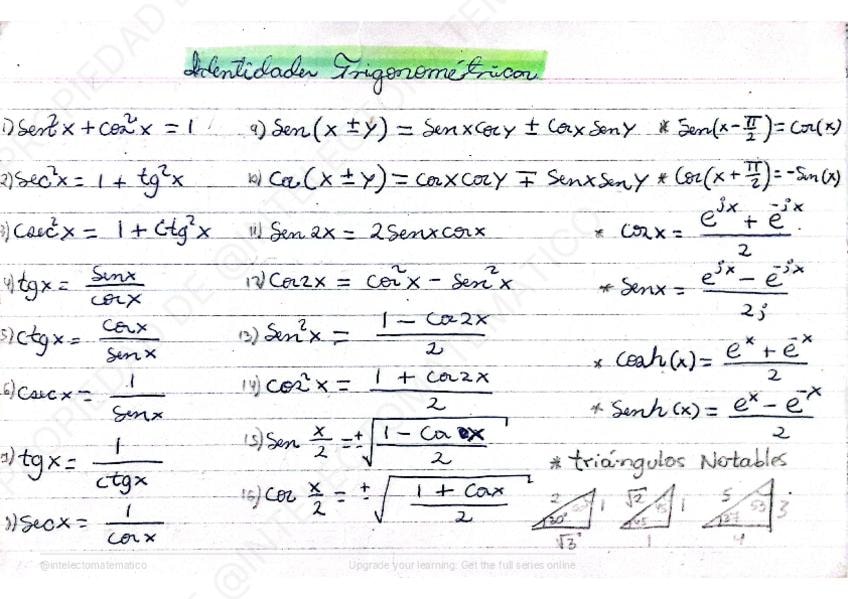 Identidades Trigonométricas
1) Sen²x + cos²x = 1
2) Sec²x = 1 + tg²x
3) Csec²x = 1 + Ctg²x
4) tgx = Senx / cosx
5) Ctgx = Cosx / Senx
6) Csecx = 1 / Senx
7) tgx = 1 / ctgx
8) Secx = 1 / cosx
9) Sen(x ± y) = Senx cosy ± Cosx Seny
10) Cos(x ± y) = cosx cosy ∓ Senx Seny
11) Sen2x = 2Senxcosx
12) Cos2x = cos²x − Sen²x
13) Sen²x = 1 − Cos2x / 2
14) Cos²x = 1 + Cos2x / 2
15) Sen x/2 = ±√(1 − Cosx / 2)
16) Cos x/2 = ±√(1 + Cosx / 2)
* Sen(x − π/2) = Cos(x)
* Cos(x + π/2) = −Sen(x)
* Cosx = e^jx + e^-jx / 2
* Senx = e^jx − e^-jx / 2j
* Cosh(x) = e^x + e^-x / 2
* Senh(x) = e^x − e^-x / 2
* triángulos Notables
2 1 30° √3
√2 45 45 1 1
5 53 3 37 4
@intelectomatematico
Upgrade your learning: Get the full series online
PROPIEDAD DE @INTELECTOMATEMATICO